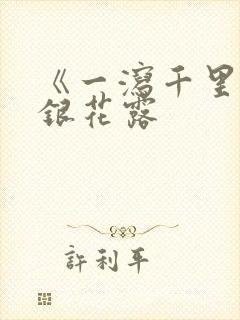 《一瀉千里
銀花露
許利平